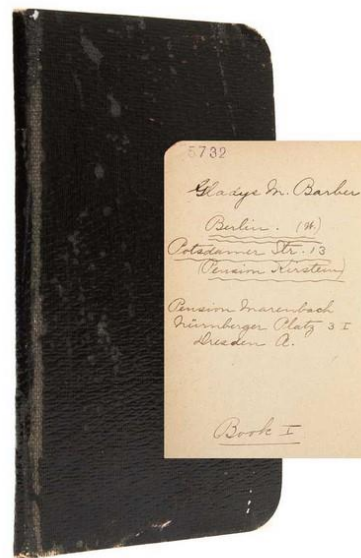 5732
Gladys M. Barber
Berlin. (W.)
Potsdamer Str. 13
(Pension Kirstein)
Pension Marenbach
Nürnberger Platz 3 I
Dresden A.
Book I